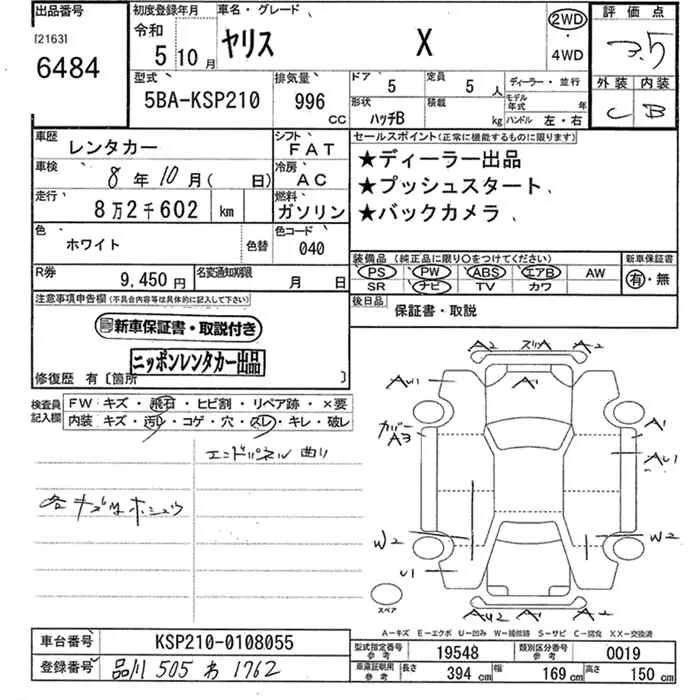 出品番号
[2163]
6484
初度登録年月
令和
5 10月
車名・グレード
ヤリス X
2WD
・
4WD
評価点
3.5
外装 内装
C B
型式
5BA-KSP210
排気量
996
CC
ドア
5
定員
5 人
形状
ハッチB
積載
kg
ディーラー・並行
モデル年式 年
ハンドル 左・右
車歴
レンタカー
シフト
FAT
車検
8年10月( 日)
冷房
AC
走行
8万2千602 km
燃料
ガソリン
色
ホワイト
色替
色コード
040
R券
9,450円
名変通知期限
月 日
セールスポイント(正常に機能するものに限ります)
★ディーラー出品
★プッシュスタート
★バックカメラ
装備品(純正品に限り○をつけてください)
PS PW ABS エアB AW
SR ナビ TV カワ
新車保証書
有・無
後日品
保証書・取説
注意事項申告欄(不具合内容等は具体的に記入して下さい)
新車保証書・取説付き
ニッポンレンタカー出品
修復歴 有〔箇所 〕
検査員記入欄
FW キズ・飛石・ヒビ割・リペア跡・×要
内装 キズ・汚レ・コゲ・穴・スレ・キレ・破レ
エンドパネル曲り
各キズ
A2 スリA A2
AU1 A1
カバー A3
A1
AU1
W2 W2
U1
スペア
AU2 A1 A2
A-キズ E-エクボ U-凹み W-補修跡 S-サビ C-腐食 XX-交換済
車台番号
KSP210-0108055
登録番号
品川 505 わ 1762
型式指定番号
参考
19548
類別区分番号
参考
0019
車庫証明用
参考
長さ 394 cm
幅 169 cm
高さ 150 cm